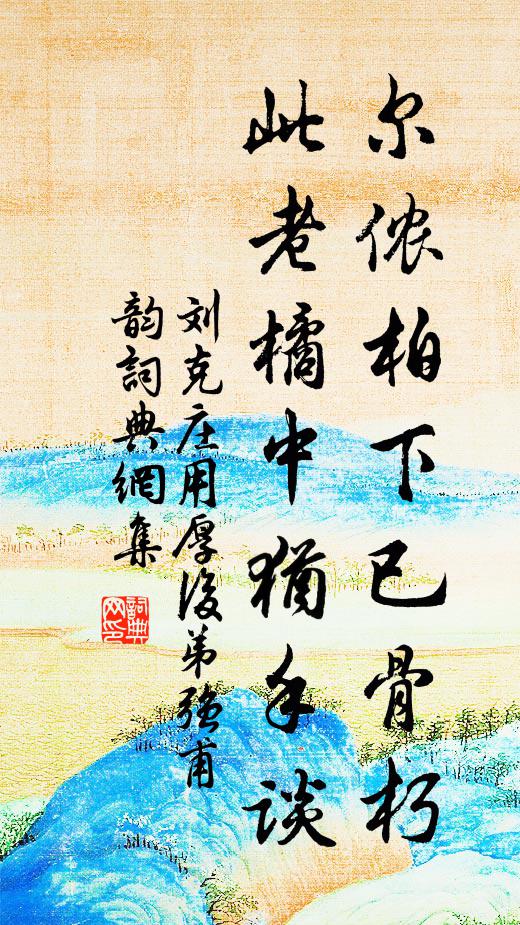 尔侬柏下已骨朽
此老橘中犹手谈
刘克庄用厚后弟强甫
韵詞典網集
詞典網印